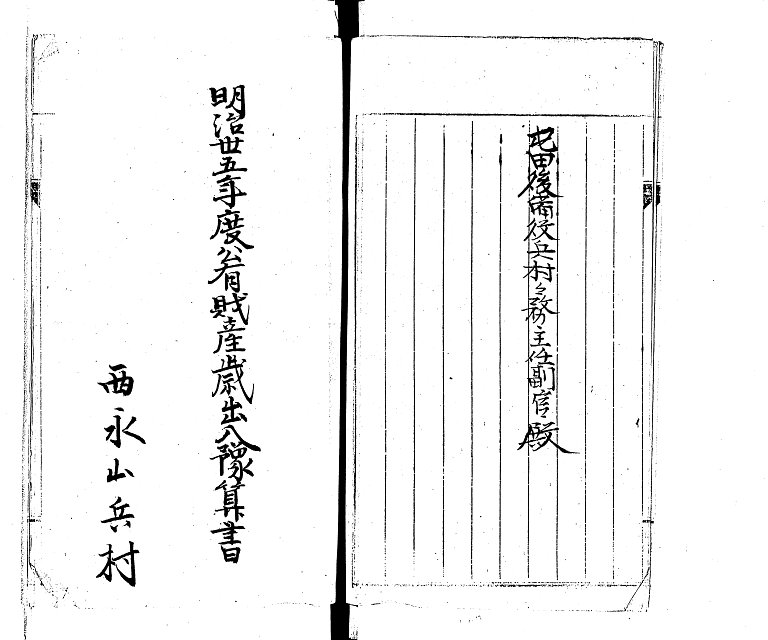 屯田後備役兵村々務主任副官殿
明治丗五年度公有財産歳出入豫算書
西永山兵村